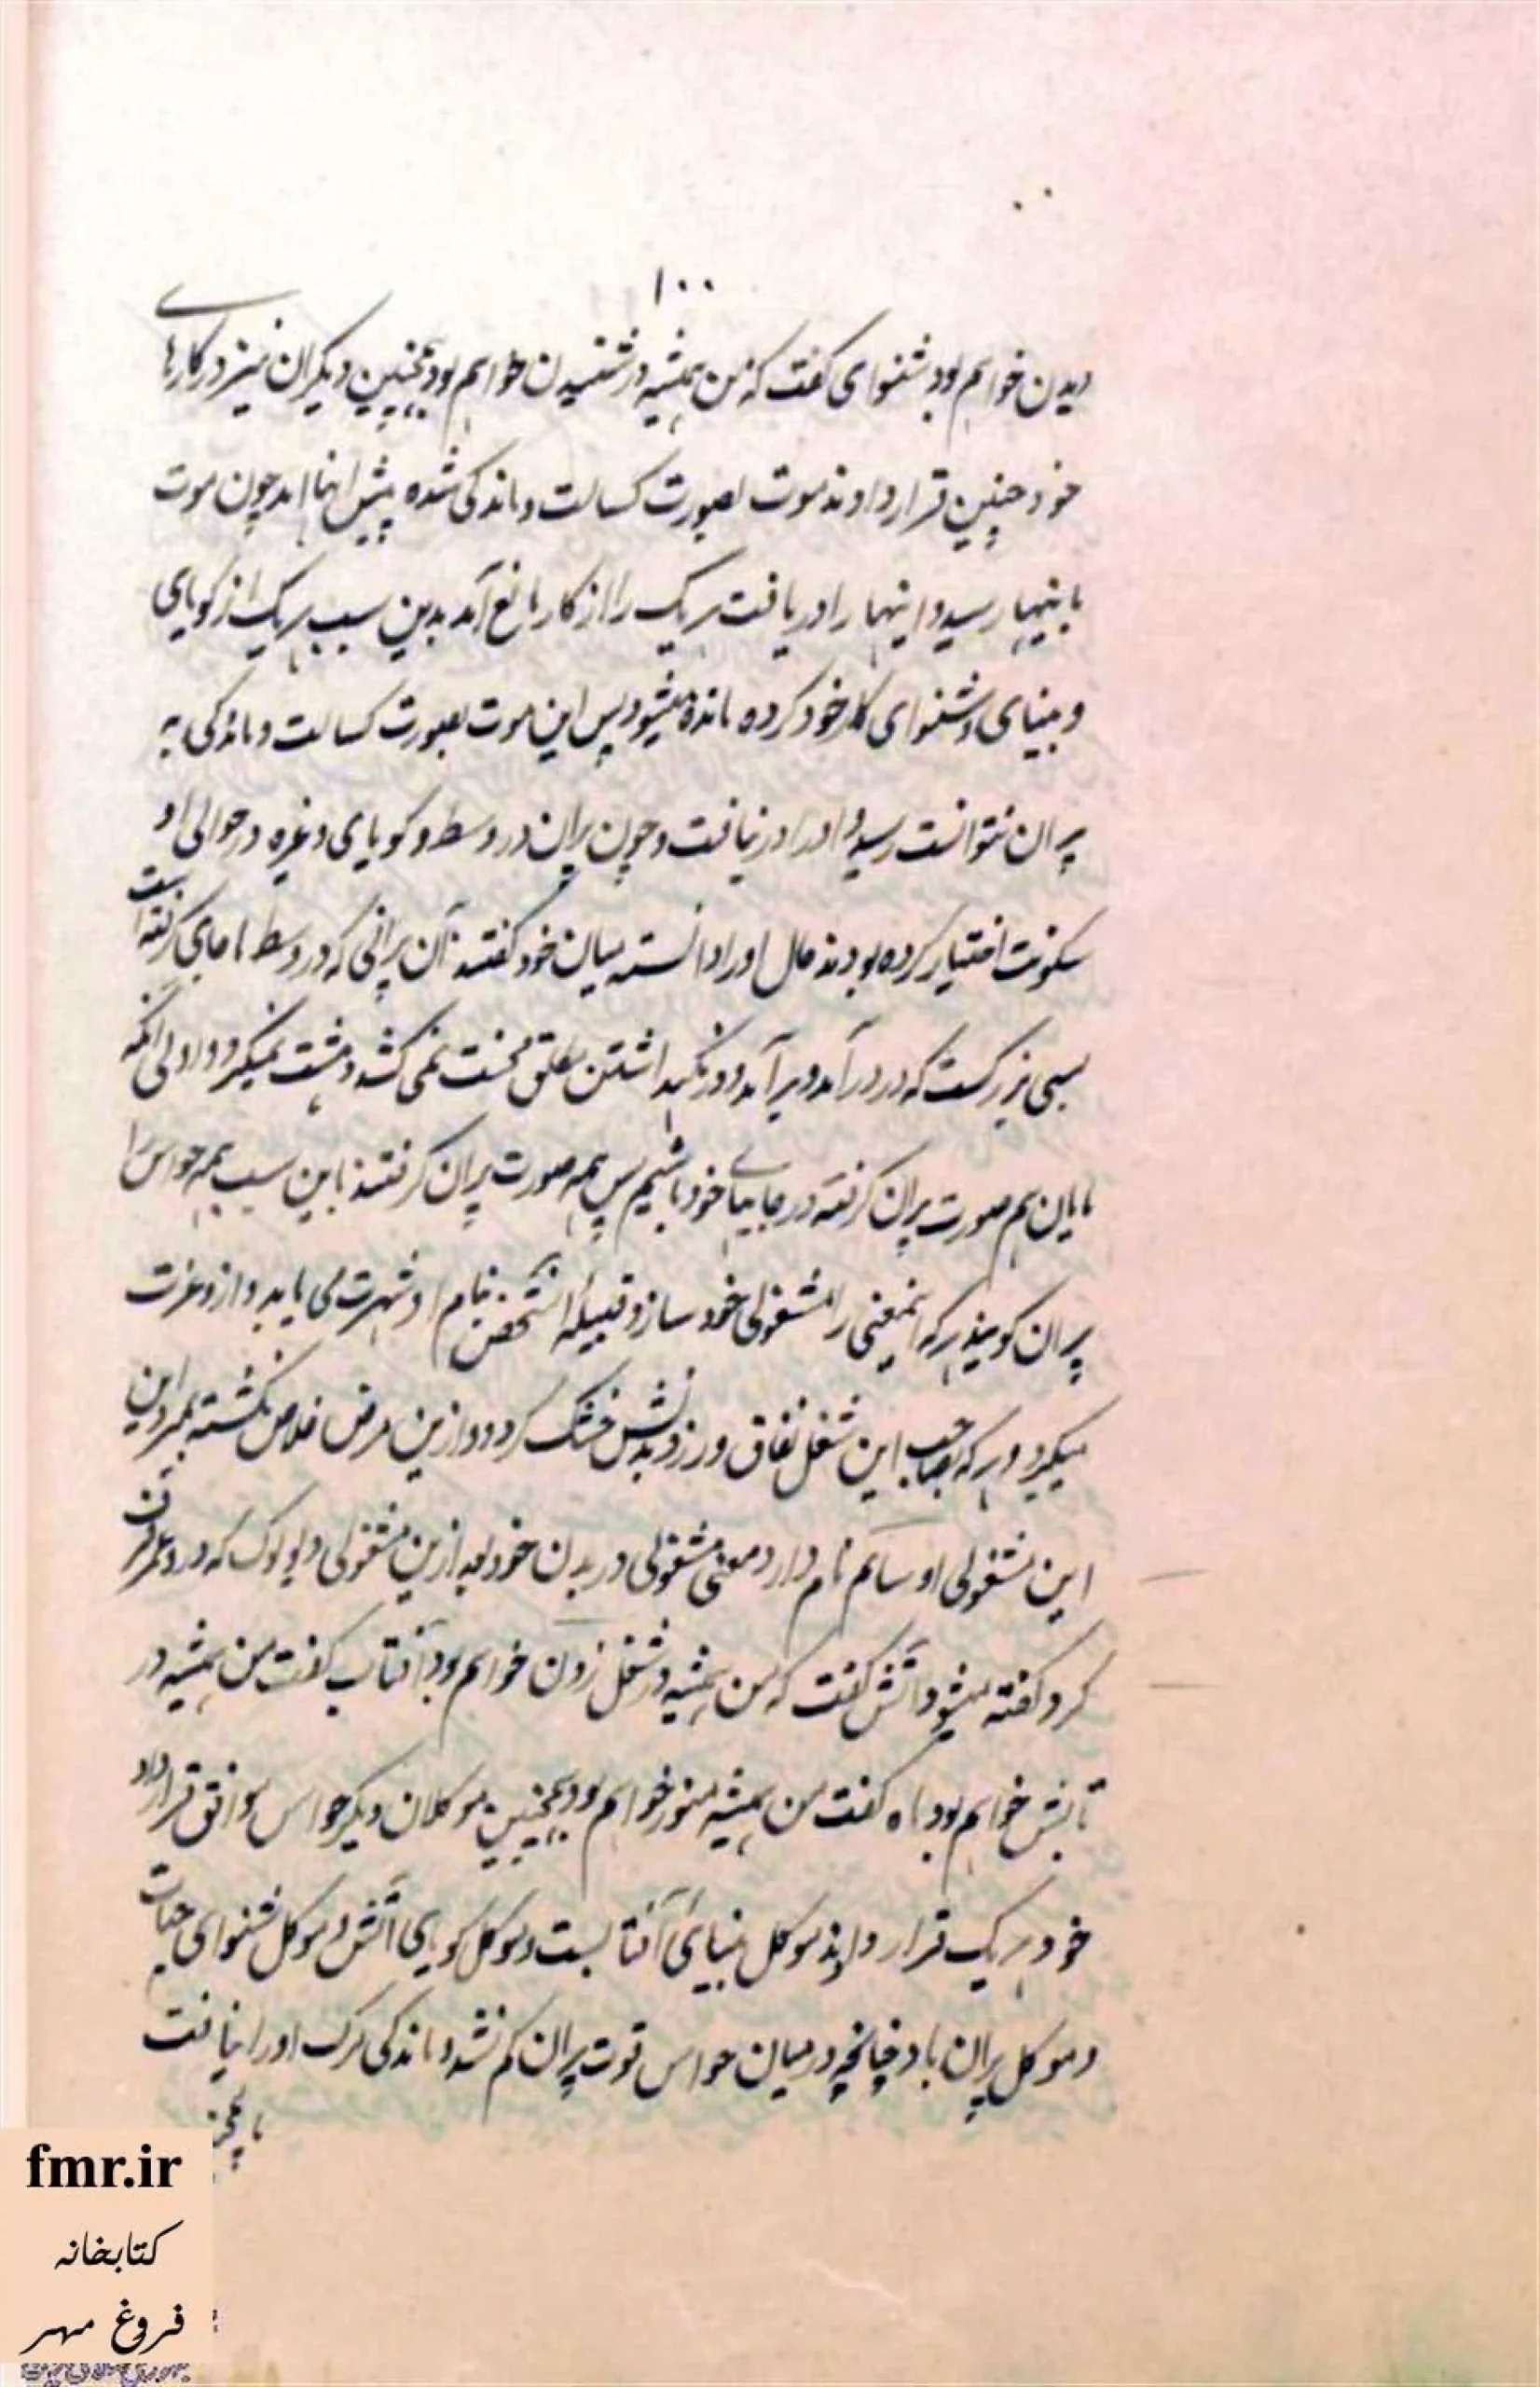 ۱۰۰
دیدن خواهم بود شنوای گفت که من همیشه در شنیدن خواهم بود همچنین دیگران نیز در کارهای
خود چنین قرار دادند موت بصورت کسالت و ماندگی شده پیش اینها آمد چون موت
باینها رسید و اینها را دریافت هر یک را از کار مانع آمد بدین سبب هر یک از گویای
و بینای و شنوای کار خود کرده مانده میشود پس این موت بصورت کسالت و ماندگی به
پران نتوانست رسید و او را در نیافت و چون پران در وسط و گویای و غیره در حوالی او
سکونت اختیار کرده بودند حال او را دانسته میان خود گفتند آن پرانی که در وسط ما جای گرفته است
بسی بزرگست که در درآمد و برآمد و در نگهداشتن متعلق محنت نمی کشد و مشت نمیگیرد و اولی آنکه
مایان هم صورت پران گرفته در جایهای خود باشیم پس همه صورت پران گرفتند باین سبب همه حواس را
پران گویند هر که اینمعنی را مشغولی خود سازد قبیله آنشخص بنام او شهرت می یابد و ازو عزت
میگیرد و هر که بصاحب این شغل نفاق ورزد بدنش خشک گردد و ازین مرض خلاص نگشته بمیرد این
این مشغولی او سانم نام دارد معنی مشغولی در بدن خود بعد ازین مشغولی دیو لوک که در و
کرد گفته میشود آتش گفت که من همیشه در شغل زدن خواهم بود آفتاب گفت من همیشه در
تابش خواهم بود ماه گفت من همیشه منور خواهم بود همچنین موکلان دیگر حواس موافق قرارداد
خود هر یک قرار دادند موکل بینائی آفتابست و موکل گویای آتش و موکل شنوای جهات
و موکل پران باد چنانچه درمیان حواس قوت پران کم نشد و ماندگی مرگ او را نیافت
fmr.ir
کتابخانه
فروغ مهر